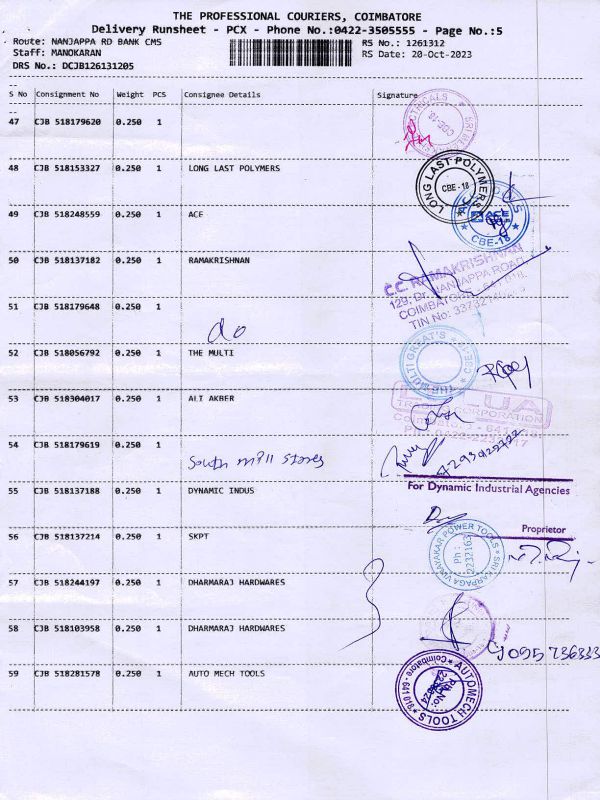 THE PROFESSIONAL COURIERS, COIMBATORE
Delivery Runsheet - PCX - Phone No.:0422-3505555 - Page No.:5
Route: NANJAPPA RD BANK CMS RS No.: 1261312
Staff: MANOKARAN RS Date: 20-Oct-2023
DRS No.: DCJB126131205
S No Consignment No Weight PCS Consignee Details Signature
47 CJB 518179620 0.250 1
CBE-18
48 CJB 518153327 0.250 1 LONG LAST POLYMERS
LONG LAST POLYMERS
CBE-18
49 CJB 518248559 0.250 1 ACE
ACE
CBE-18
50 CJB 518137182 0.250 1 RAMAKRISHNAN
C.C. RAMAKRISHNAN
129, Dr. NANJAPPA ROAD
51 CJB 518179648 0.250 1
do
52 CJB 518056792 0.250 1 THE MULTI
THE MULTI GREAT'S
53 CJB 518304017 0.250 1 ALI AKBER
54 CJB 518179619 0.250 1
South mill stores
For Dynamic Industrial Agencies
55 CJB 518137188 0.250 1 DYNAMIC INDUS
Proprietor
56 CJB 518137214 0.250 1 SKPT
SRI KARPAGA VINAYAKAR POWER TOOLS
Ph: 2232163
57 CJB 518244197 0.250 1 DHARMARAJ HARDWARES
58 CJB 518103958 0.250 1 DHARMARAJ HARDWARES
59 CJB 518281578 0.250 1 AUTO MECH TOOLS
AUTOMECH TOOLS
Coimbatore - 641 018